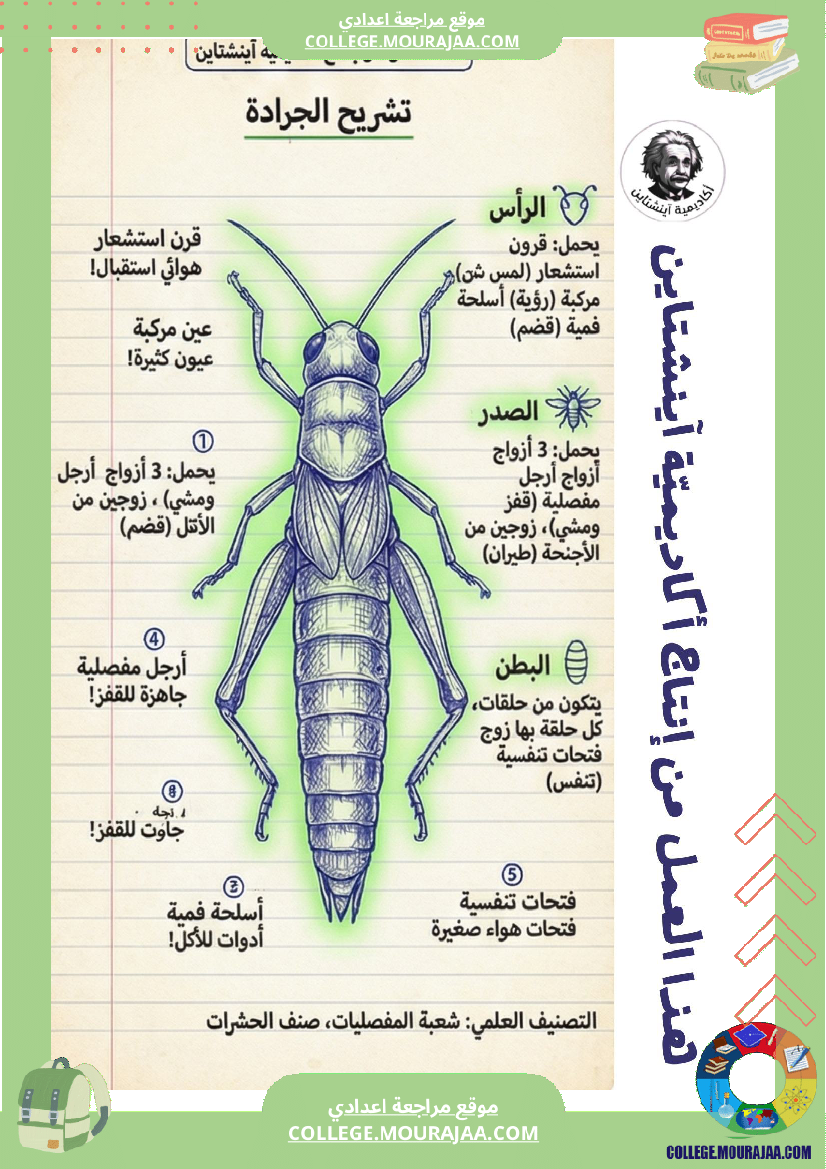 موقع مراجعة اعدادي
COLLEGE.MOURAJAA.COM
آينشتاين
تشريح الجرادة
أكاديمية آينشتاين
الرأس
يحمل: قرون
استشعار (لمس شن)
مركبة (رؤية) أسلحة
فمية (قضم)
قرن استشعار
هوائي استقبال!
عين مركبة
عيون كثيرة!
الصدر
يحمل: 3 أزواج
أزواج أرجل
مفصلية (قفز
ومشي)، زوجين من
الأجنحة (طيران)
1
يحمل: 3 أزواج أرجل
ومشي) ، زوجين من
(قضم)
4
أرجل مفصلية
جاهزة للقفز!
البطن
يتكون من حلقات،
كل حلقة بها زوج
فتحات تنفسية
(تنفس)
جاوت للقفز!
أسلحة فمية
أدوات للأكل!
5
فتحات تنفسية
فتحات هواء صغيرة
التصنيف العلمي: شعبة المفصليات، صنف الحشرات
هذا العمل من إنتاج أكاديميّة آينشتاين
موقع مراجعة اعدادي
COLLEGE.MOURAJAA.COM
COLLEGE.MOURAJAA.COM